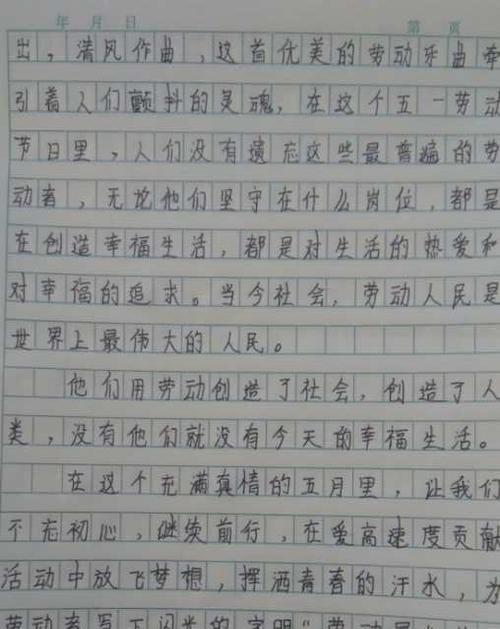 年 月 日 第 页
出，清风作曲，这首优美的劳动乐曲牵
引着人们颤抖的灵魂，在这个五一劳动
节日里，人们没有遗忘这些最普遍的劳
动者，无论他们坚守在什么岗位，都是
在创造幸福生活，都是对生活的热爱和
对幸福的追求。当今社会，劳动人民是
世界上最伟大的人民。
他们用劳动创造了社会，创造了人
类，没有他们就没有今天的幸福生活。
在这个充满真情的五月里，让我们
不忘初心，继续前行，在爱高速度贡献
活动中放飞梦想，挥洒青春的汗水，为
劳动者写下闪光的字眼"劳动是